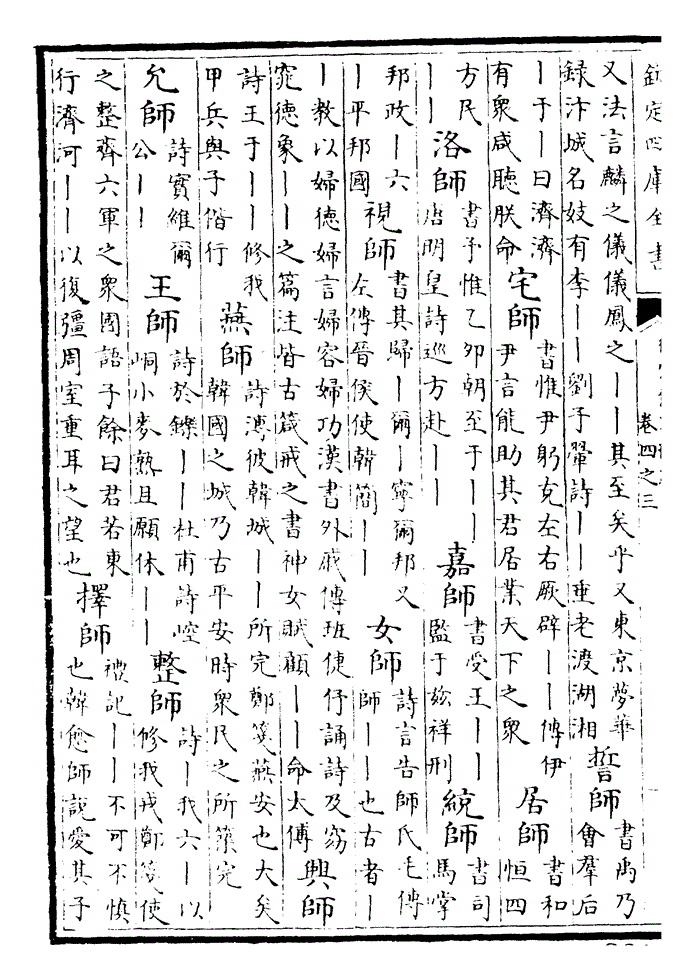 欽定四庫全書
卷四之三
又法言麟之儀儀鳳之丨丨其至矣乎又東京夢華
録汴城名妓有李丨丨劉子翬詩丨丨垂老渡湖湘
誓師
書禹乃
會羣后
丨于丨曰濟濟
有衆咸聽朕命
宅師
書惟尹躬克左右厥辟丨丨傳伊
尹言能助其君居業天下之衆
居師
書和
恒四
方民
丨丨
洛師
書予惟乙夘朝至于丨丨
唐明皇詩巡方赴丨丨
嘉師
書受王丨丨
監于兹祥刑
統師
書司
馬掌
邦政丨六
丨平邦國
視師
書其歸丨爾丨寧爾邦又
左傳晉侯使韓簡丨丨
女師
詩言告師氏毛傳
師丨丨也古者丨
丨教以婦德婦言婦容婦功漢書外戚傳班倢伃誦詩及窈
窕德象丨丨之篇注皆古箴戒之書神女賦顧丨丨命太傅
興師
詩王于丨丨修我
甲兵與子偕行
燕師
詩溥彼韓城丨丨所完鄭箋燕安也大矣
韓國之城乃古平安時衆民之所築完
允師
詩實維爾
公丨丨
王師
詩於鑠丨丨杜甫詩崆
峒小麥熟且願休丨丨
整師
詩丨我六丨以
修我戎鄭箋使
之整齊六軍之衆國語子餘曰君若東
行濟河丨丨以復彊周室重耳之望也
擇師
禮記丨丨不可不慎
也韓愈師說愛其子